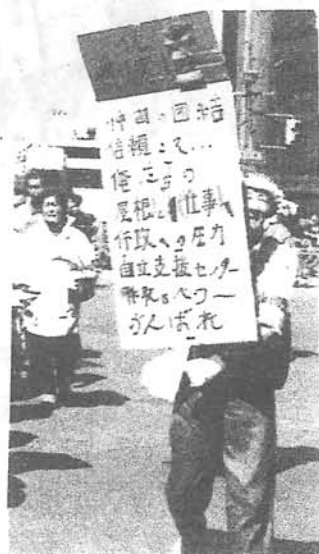 仲間の団結
信頼こそ…
俺たちの
屋根と仕事
行政への圧力
自立支援センター
がんばれ